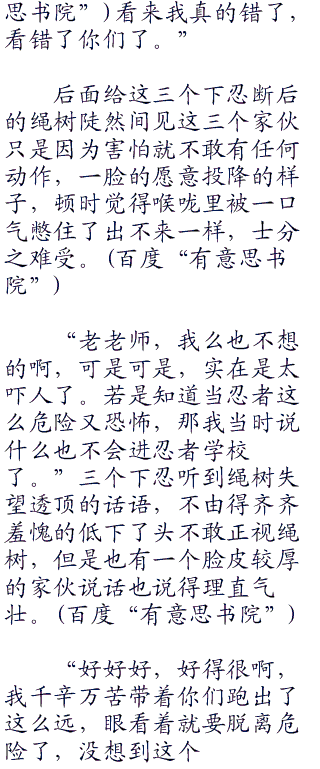 思书院”)看来我真的错了，
看错了你们了。”
后面给这三个下忍断后
的绳树陡然间见这三个家伙
只是因为害怕就不敢有任何
动作，一脸的愿意投降的样
子，顿时觉得喉咙里被一口
气憋住了出不来一样，士分
之难受。(百度“有意思书
院”)
“老老师，我么也不想
的啊，可是可是，实在是太
吓人了。若是知道当忍者这
么危险又恐怖，那我当时说
什么也不会进忍者学校
了。”三个下忍听到绳树失
望透顶的话语，不由得齐齐
羞愧的低下了头不敢正视绳
树，但是也有一个脸皮较厚
的家伙说话也说得理直气
壮。(百度“有意思书院”)
“好好好，好得很啊，
我千辛万苦带着你们跑出了
这么远，眼看着就要脱离危
险了，没想到这个